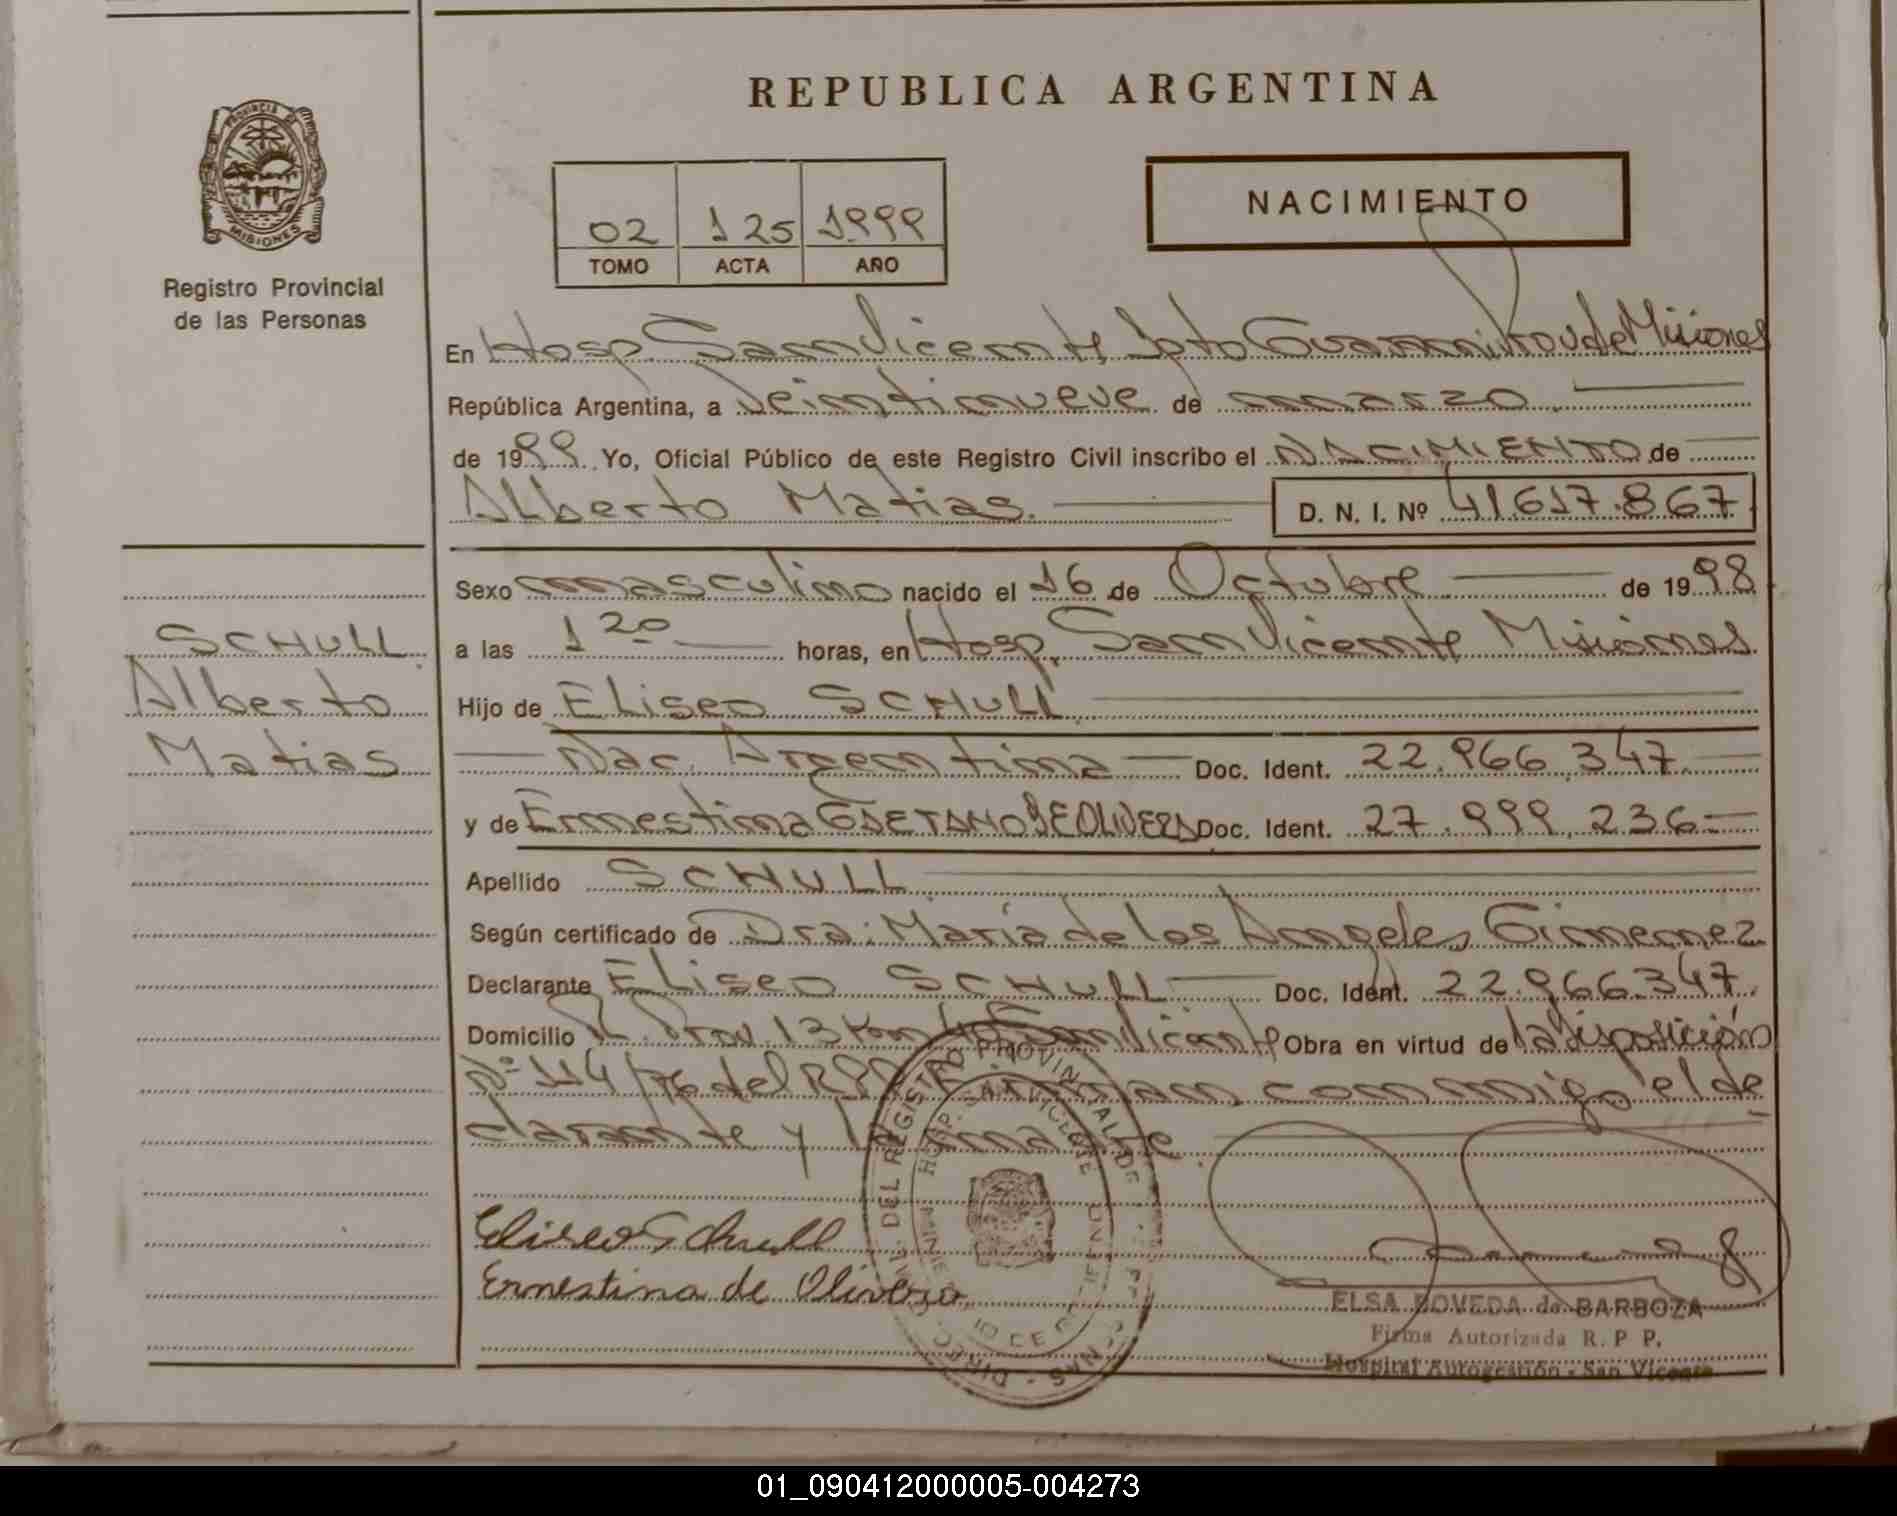 REPUBLICA ARGENTINA
PROVINCIA DE
MISIONES
Registro Provincial
de las Personas
02 125 1999
TOMO ACTA AÑO
NACIMIENTO
En Hosp. San Vicente Dpto Guarani Prov de Misiones
República Argentina, a Veintinueve de marzo
de 1999 Yo, Oficial Público de este Registro Civil inscribo el NACIMIENTO de
Alberto Matias. D. N. I. Nº 41.617.867
Sexo masculino nacido el 16 de Octubre de 1998
a las 1 20 horas, en Hosp. San Vicente Misiones.
Hijo de Eliseo SCHULL
Nac. Argentina Doc. Ident. 22.966.347
y de Ernestina GAETANO DE OLIVERA Doc. Ident. 27.999.236
Apellido SCHULL
Según certificado de Dra. María de los Angeles Gimenez
Declarante Eliseo SCHULL Doc. Ident. 22.966.347.
Domicilio R. Prov. 13 Km San Vicente Obra en virtud de la disposición
Nº 114/76 del firman conmigo el de
clarante y la madre
SCHULL
Alberto
Matias
Eliseo Schull
Ernestina de Olivera
DIREC. DEL REGISTRO PROVINCIAL DE LAS PERSONAS
HOSP. SAN VICENTE
ELSA POVEDA de BARBOZA
Firma Autorizada R. P P.
Hospital Autogestión - San Vicente
01_090412000005-004273